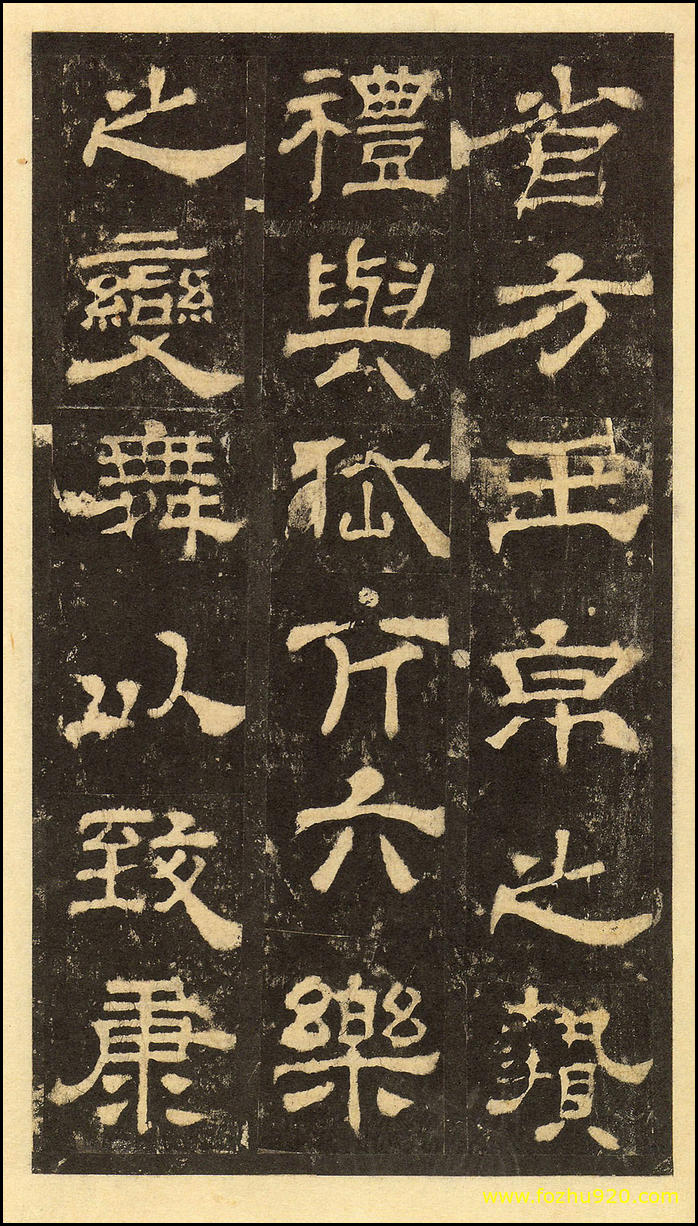 省方玉帛之贄
禮與岱亢六樂
之變舞以致康
www.fozhu920.com